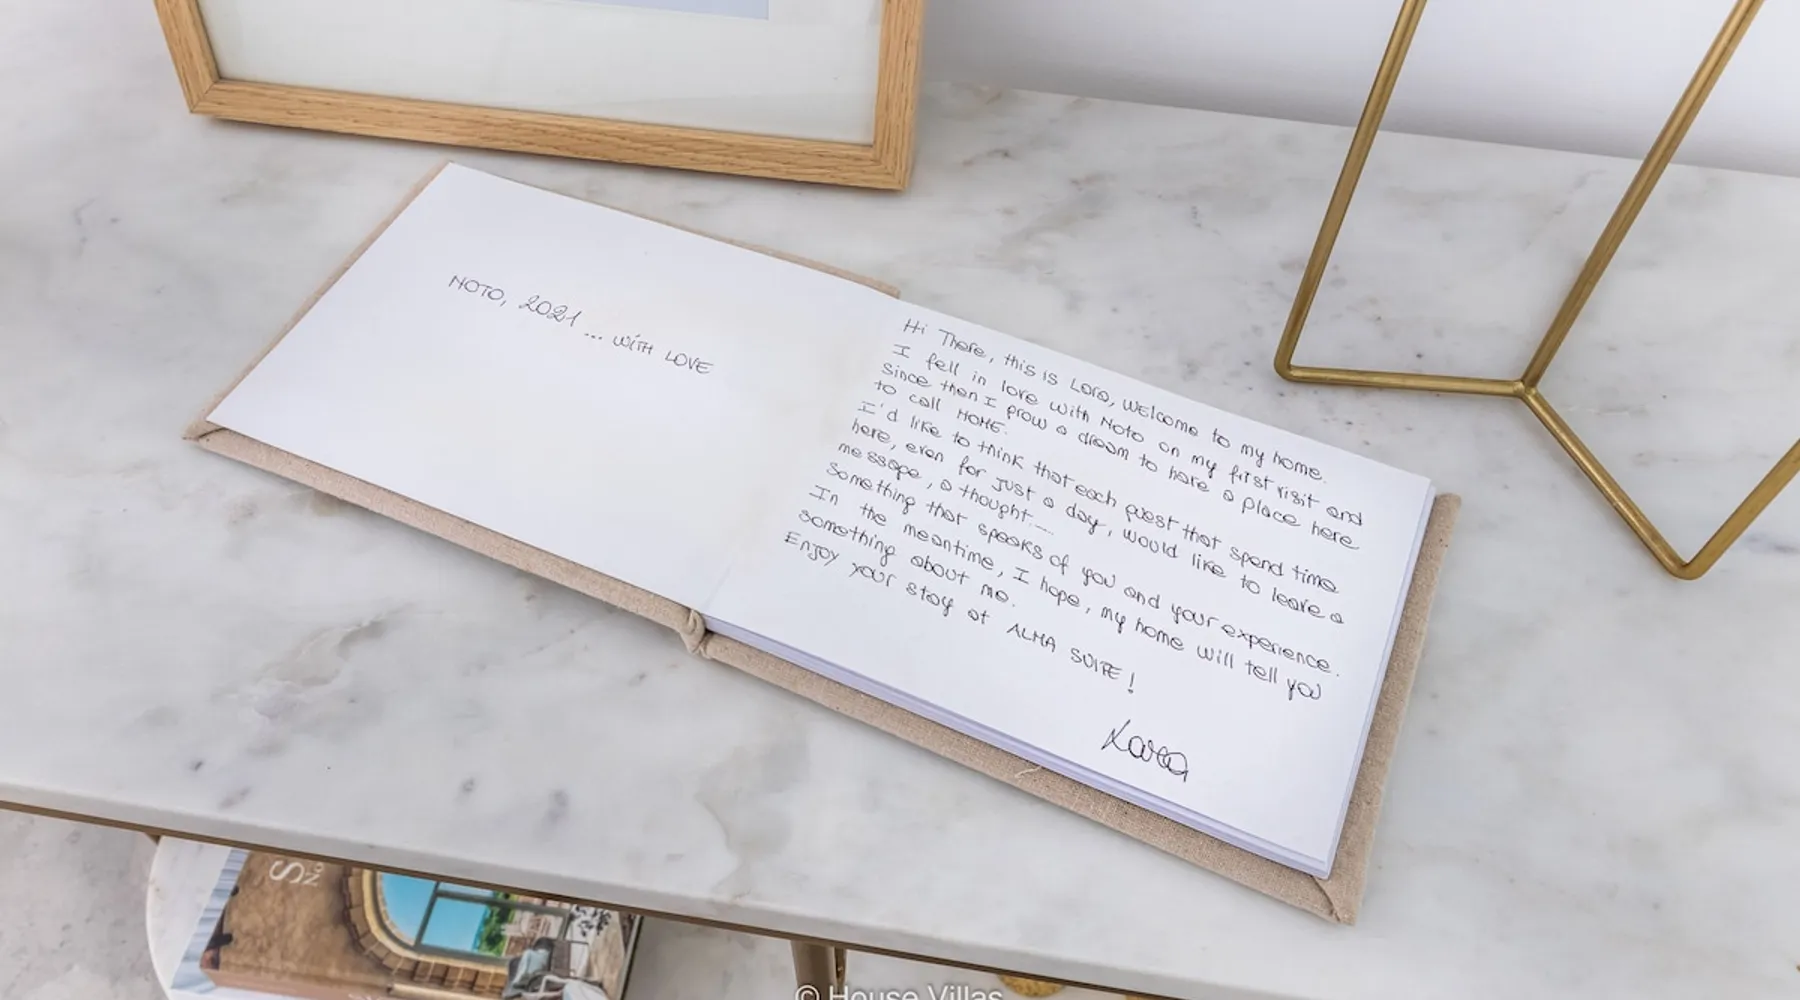 NOTO, 2021 ... WITH LOVE
Hi There, this is Lara, Welcome to my home.
I fell in love with Noto on my first visit and
since then I grow a dream to have a place here
to call HOME.
I'd like to think that each guest that spend time
here, even for just a day, would like to leave a
message, a thought....
Something that speaks of you and your experience.
In the meantime, I hope, my home will tell you
something about me.
Enjoy your stay at ALMA SUITE!
Lara
S
NO
© House Villas